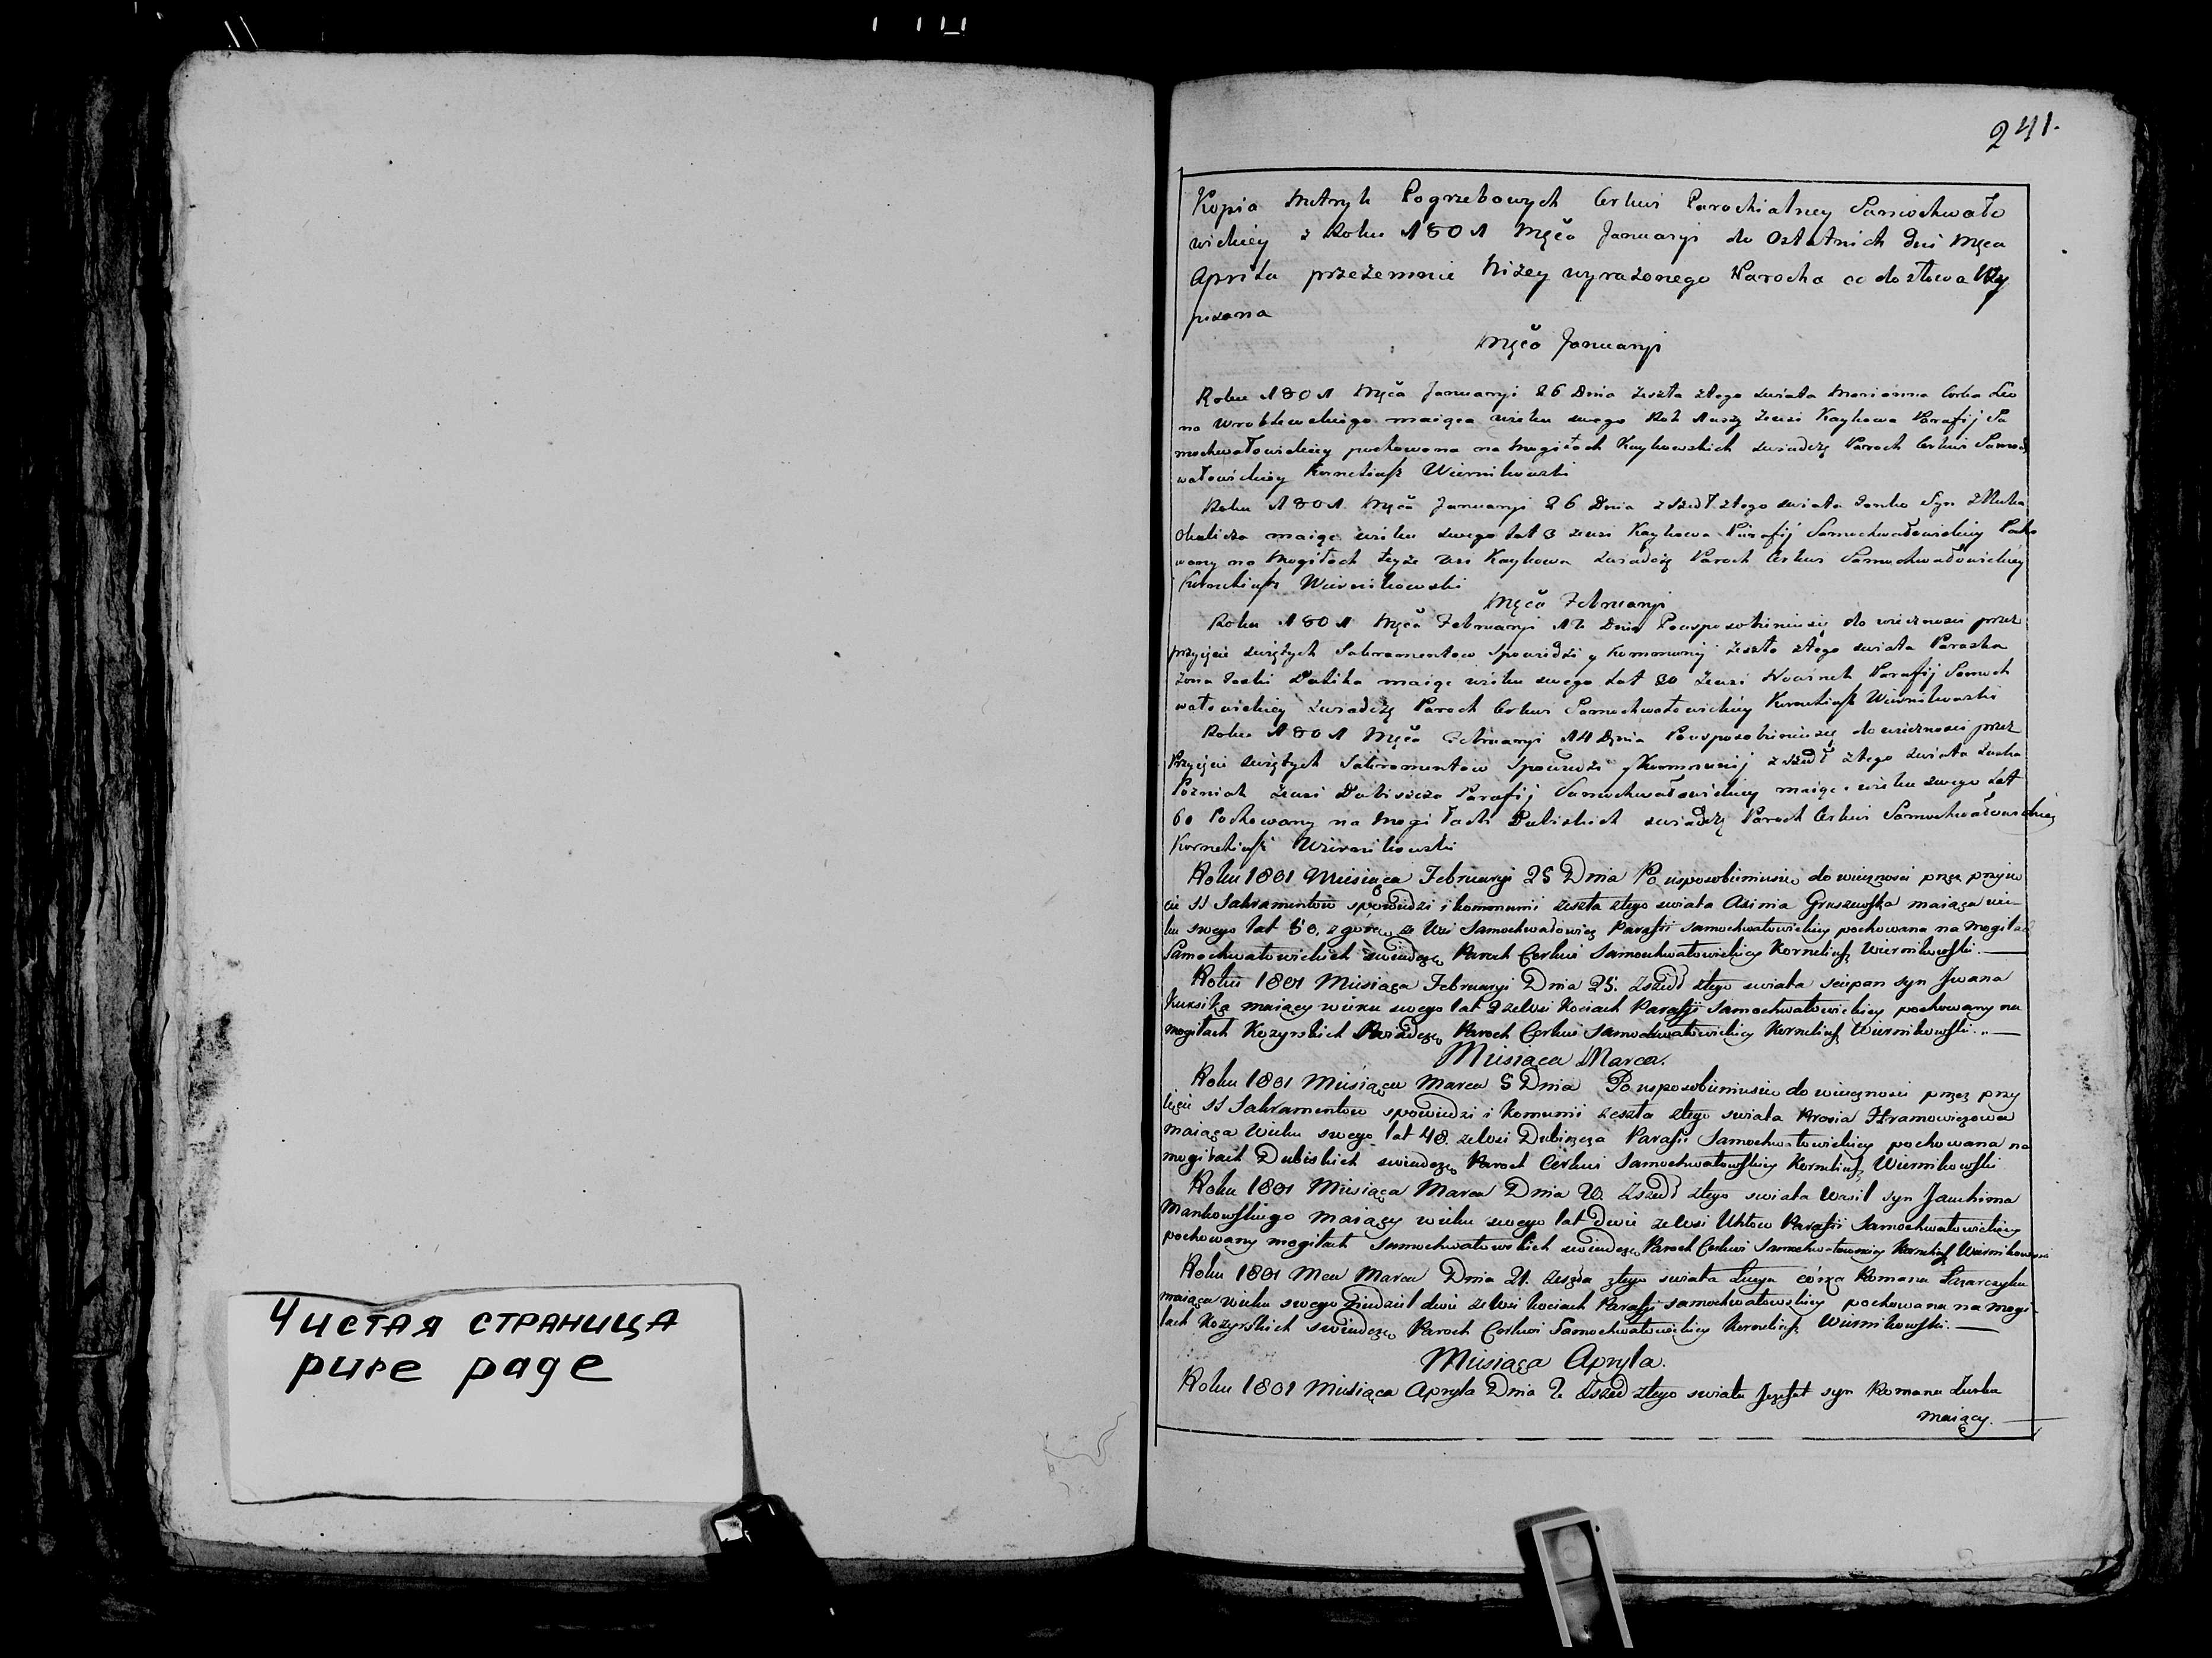 Чистая страница
pure page
241.
Kopia Metryk Pogrzebowych Cerkwi Parochialney Samochwało
wickiey z Roku 1801 Mcǎ Januaryi do Ostatnich dni Mca
Aprila przezemnie Niżey wyrażonego Parocha co do słowa Wy
pisana
Męcǎ Januaryi
Roku 1801 Męcǎ Januaryi 26 Dnia zeszła ztego swiata Marianna Corka Leo
na Wroblewskiego maiąca wieku swego Rok zewsi Kaykowa Parafij Sa
mochwałowickiey pochowana na Mogiłach Kaykowskich swiadczę Paroch Cerkwi Samoch
wałowickiey Korneliusz Wiernikowski
Roku 1801 Męcǎ Januaryi 26 Dnia zszedł ztego swiata Janko Syn
maiąc wieku swego lat 3 zewsi Kaykowa Parafij Samochwałowickiey Pocho
wany na Mogiłach teyże wsi Kaykowa swiadczę Paroch Cerkwi Samochwałowickiey
Korneliusz Wiernikowski
Męcǎ Februaryi
Roku 1801 Męcǎ Februaryi 12 Dnia Pousposobieniusię do wiecznosci przez
przyięcie swiętych Sakramentow Spowiedzi y Kommunij zeszła ztego swiata Paraska
żona Dalika maiąc wieku swego Lat 30 zewsi Nowinek Parafij Samoch
wałowickiey swiadczę Paroch Cerkwi Samochwałowickiey Korneliusz Wiernikowski
Roku 1801 Męcǎ Februaryi 14 Dnia Pousposobieniusię do wiecznosci przez
Przyięcie swiętych Sakramentow Spowiedzi y Kommunij zszedł ztego swiata
Pozniak zewsi Dubiszcza Parafij Samochwałowickiey maiąc wieku swego Lat
60 Pochowany na Mogiłach Dubiskich swiadczę Paroch Cerkwi Samochwałowickiey
Korneliusz Wiernikowski
Roku 1801 Miesiąca Februaryi 25 Dnia Po usposobieniusie do wiecznosci przez przyię
cie SS Sakramentow spowiedzi i kommunii zeszła ztego swiata Axinia Gruszewska maiąca wie-
ku swego lat 50. z gorą ze Wsi Samochwałowicz Parafii Samochwałowickiey pochowana na mogiłach
Samochwałowickich swiadczę Paroch Cerkwi Samochwałowickiey Korneliusz Wiernikowski. —
Roku 1801 Miesiąca Februaryi Dnia 25. Zszedł ztego swiata Sciepan syn Jwana
Kuksika maiący wieku swego lat 2 zewsi Kociach Parafii Samochwałowickiey pochowany na
mogiłach Kozyrskich swiadczę Paroch Cerkwi Samochwałowickiey Korneliusz Wiernikowski. —
Miesiąca Marca.
Roku 1801 Miesiąca Marca 5 Dnia Po usposobieniusie do wiecznosci przez przy
ięcie SS Sakramentow spowiedzi i Komunii zeszła ztego swiata
maiąca Wieku swego lat 48. zewsi Dubiszcza Parafii Samochwałowickiey pochowana na
mogiłach Dubiskich swiadczę Paroch Cerkwi Samochwałowskiey Korneliusz Wiernikowski
Roku 1801 Miesiąca Marca Dnia 20. Zszedł ztego swiata Wasil syn Jauchima
Mankowskiego maiący wieku swego lat Dwie zeWsi Parafii Samochwałowickiey
pochowany mogiłach Samochwałowskich swiadczę Paroch Cerkwi Korneliusz Wiernikowski
Roku 1801 Mca Marca Dnia 21. zeszła ztego swiata Lucya córka Romana Łazarczyka
maiąca wieku swego Niedziel dwie zeWsi Kociach Parafii Samochwałowskiey pochowana na mogi-
łach Kozyrskich swiadczę Paroch Cerkwi Samochwałowickiey Korneliusz Wiernikowski. —
Miesiąca Apryla.
Roku 1801 Miesiąca Apryla Dnia 2 Zszed ztego swiata Jozefat syn Romana
maiący. —